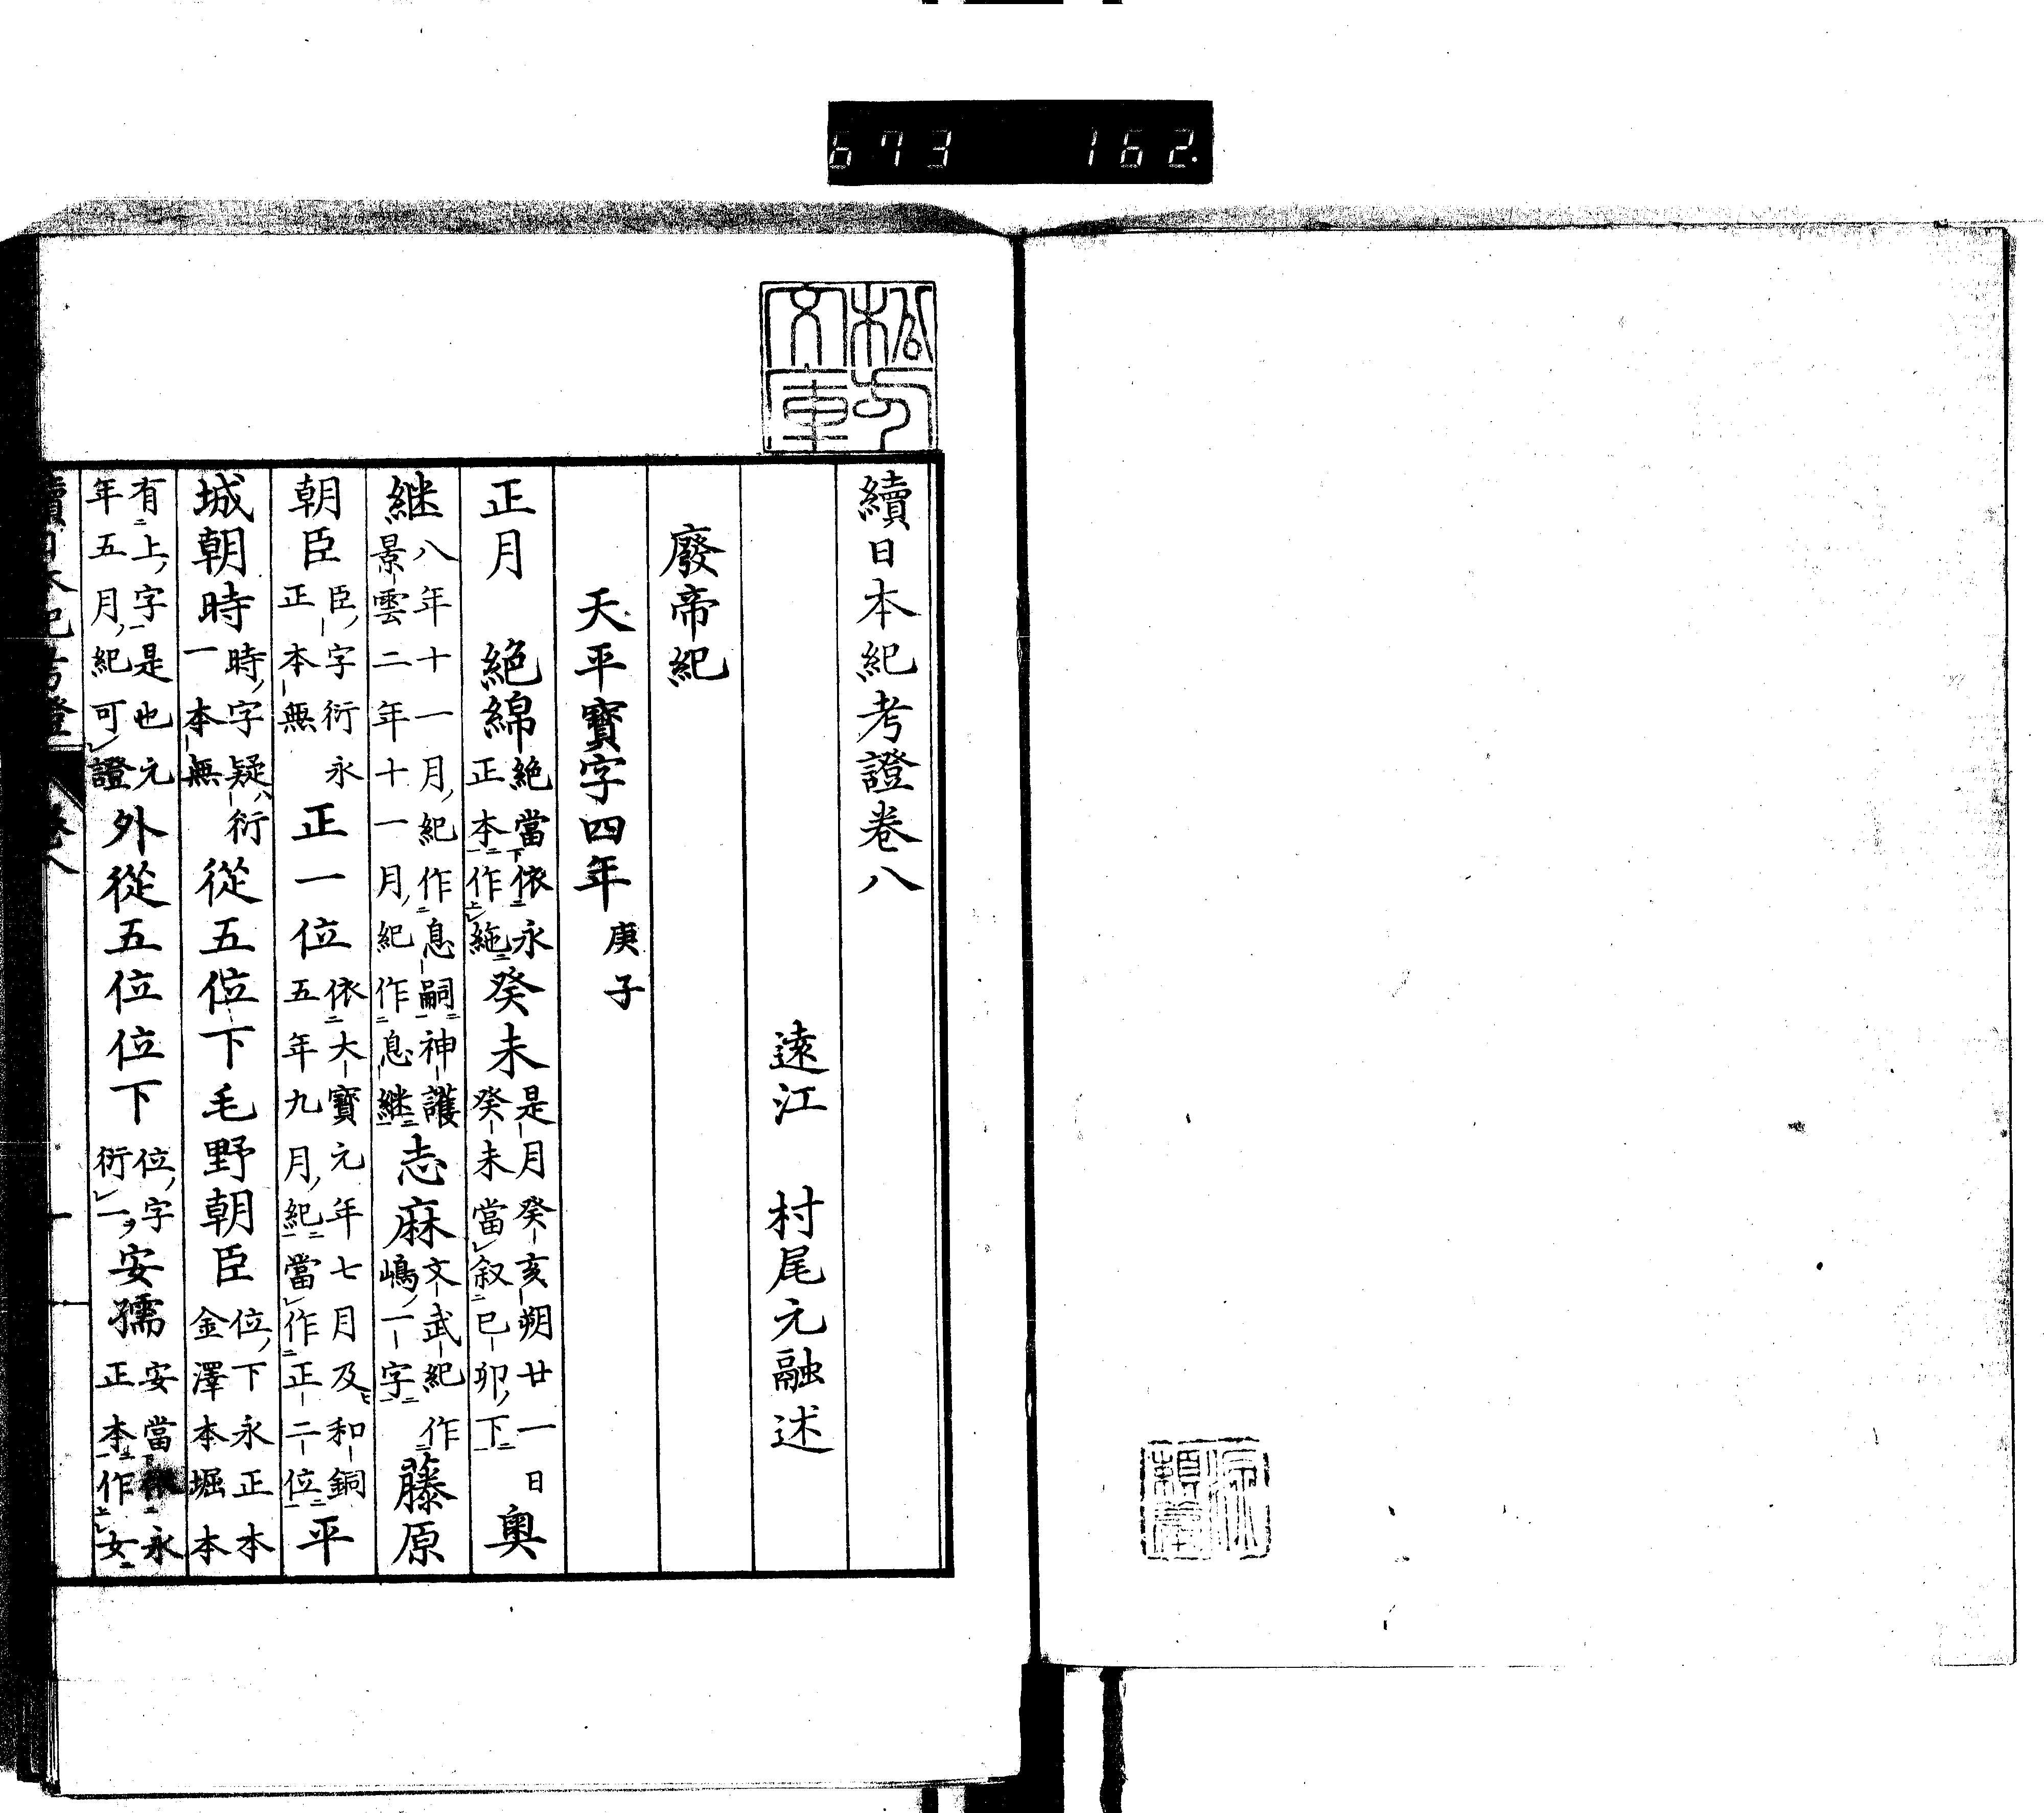 673 162.
松方文庫
續日本紀考證卷八
遠江 村尾元融述
廢帝紀
天平寶字四年庚子
正月 絁綿絁當依永正本作絁癸未是月癸亥朔廿一日癸未當叙已卯下奥
継八年十一月紀作息嗣神護景雲二年十一月紀作息継志麻文武紀作嶋一字藤原
朝臣臣字衍永正本無 正一位依大寶元年七月及和銅五年九月紀當作正二位平
城朝時時字疑衍一本無 從五位下毛野朝臣位下永正本金澤本堀本
有上字是也元年五月紀可證外從五位位下位字衍一安孺安當依永正本作女
續日本紀考證 卷八 一